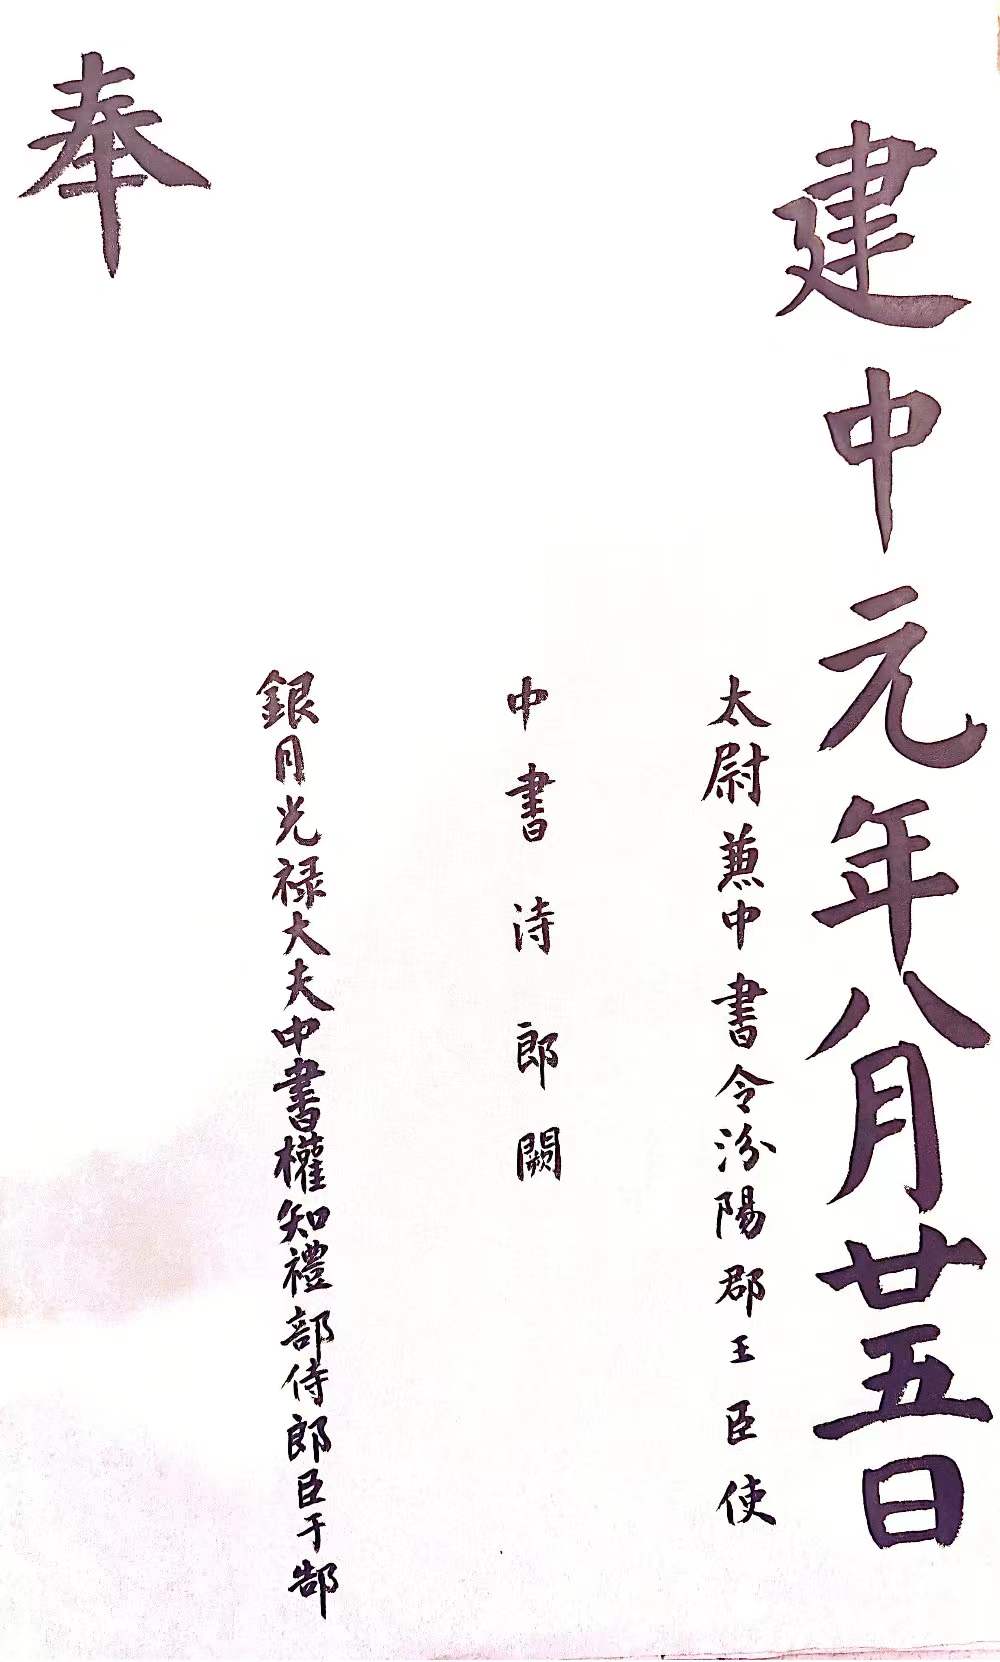 建中元年八月廿五日
太尉兼中書令汾陽郡王臣使
中書洔郎闕
銀月光禄大夫中書權知禮部侍郎臣于郜
奉